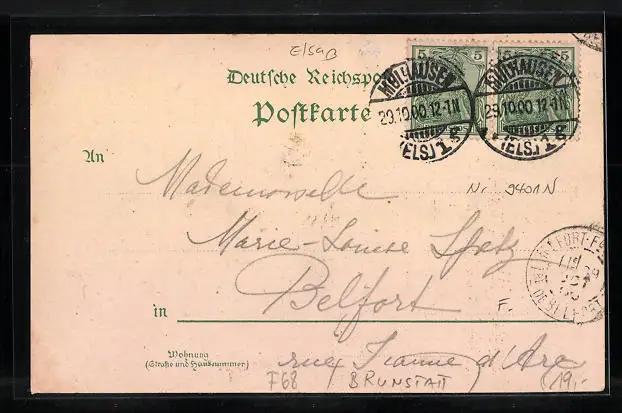 Elsaß
5 5 5 5
Deutsche Reichspost
Postkarte
MÜLHAUSEN
29.10.00.12-1N
(ELS.) 1 g
MÜLHAUSEN
29.10.00.12-1N
(ELS.) 1 g
An
Mademoiselle
Nr. 9401N
Marie-Louise Spetz
BELFORT
29
OCT
DE BELFORT
in Belfort
F.
Wohnung
(Straße und Hausnummer)
rue Jeanne d'Arc
F68 BRUNSTATT (19,-